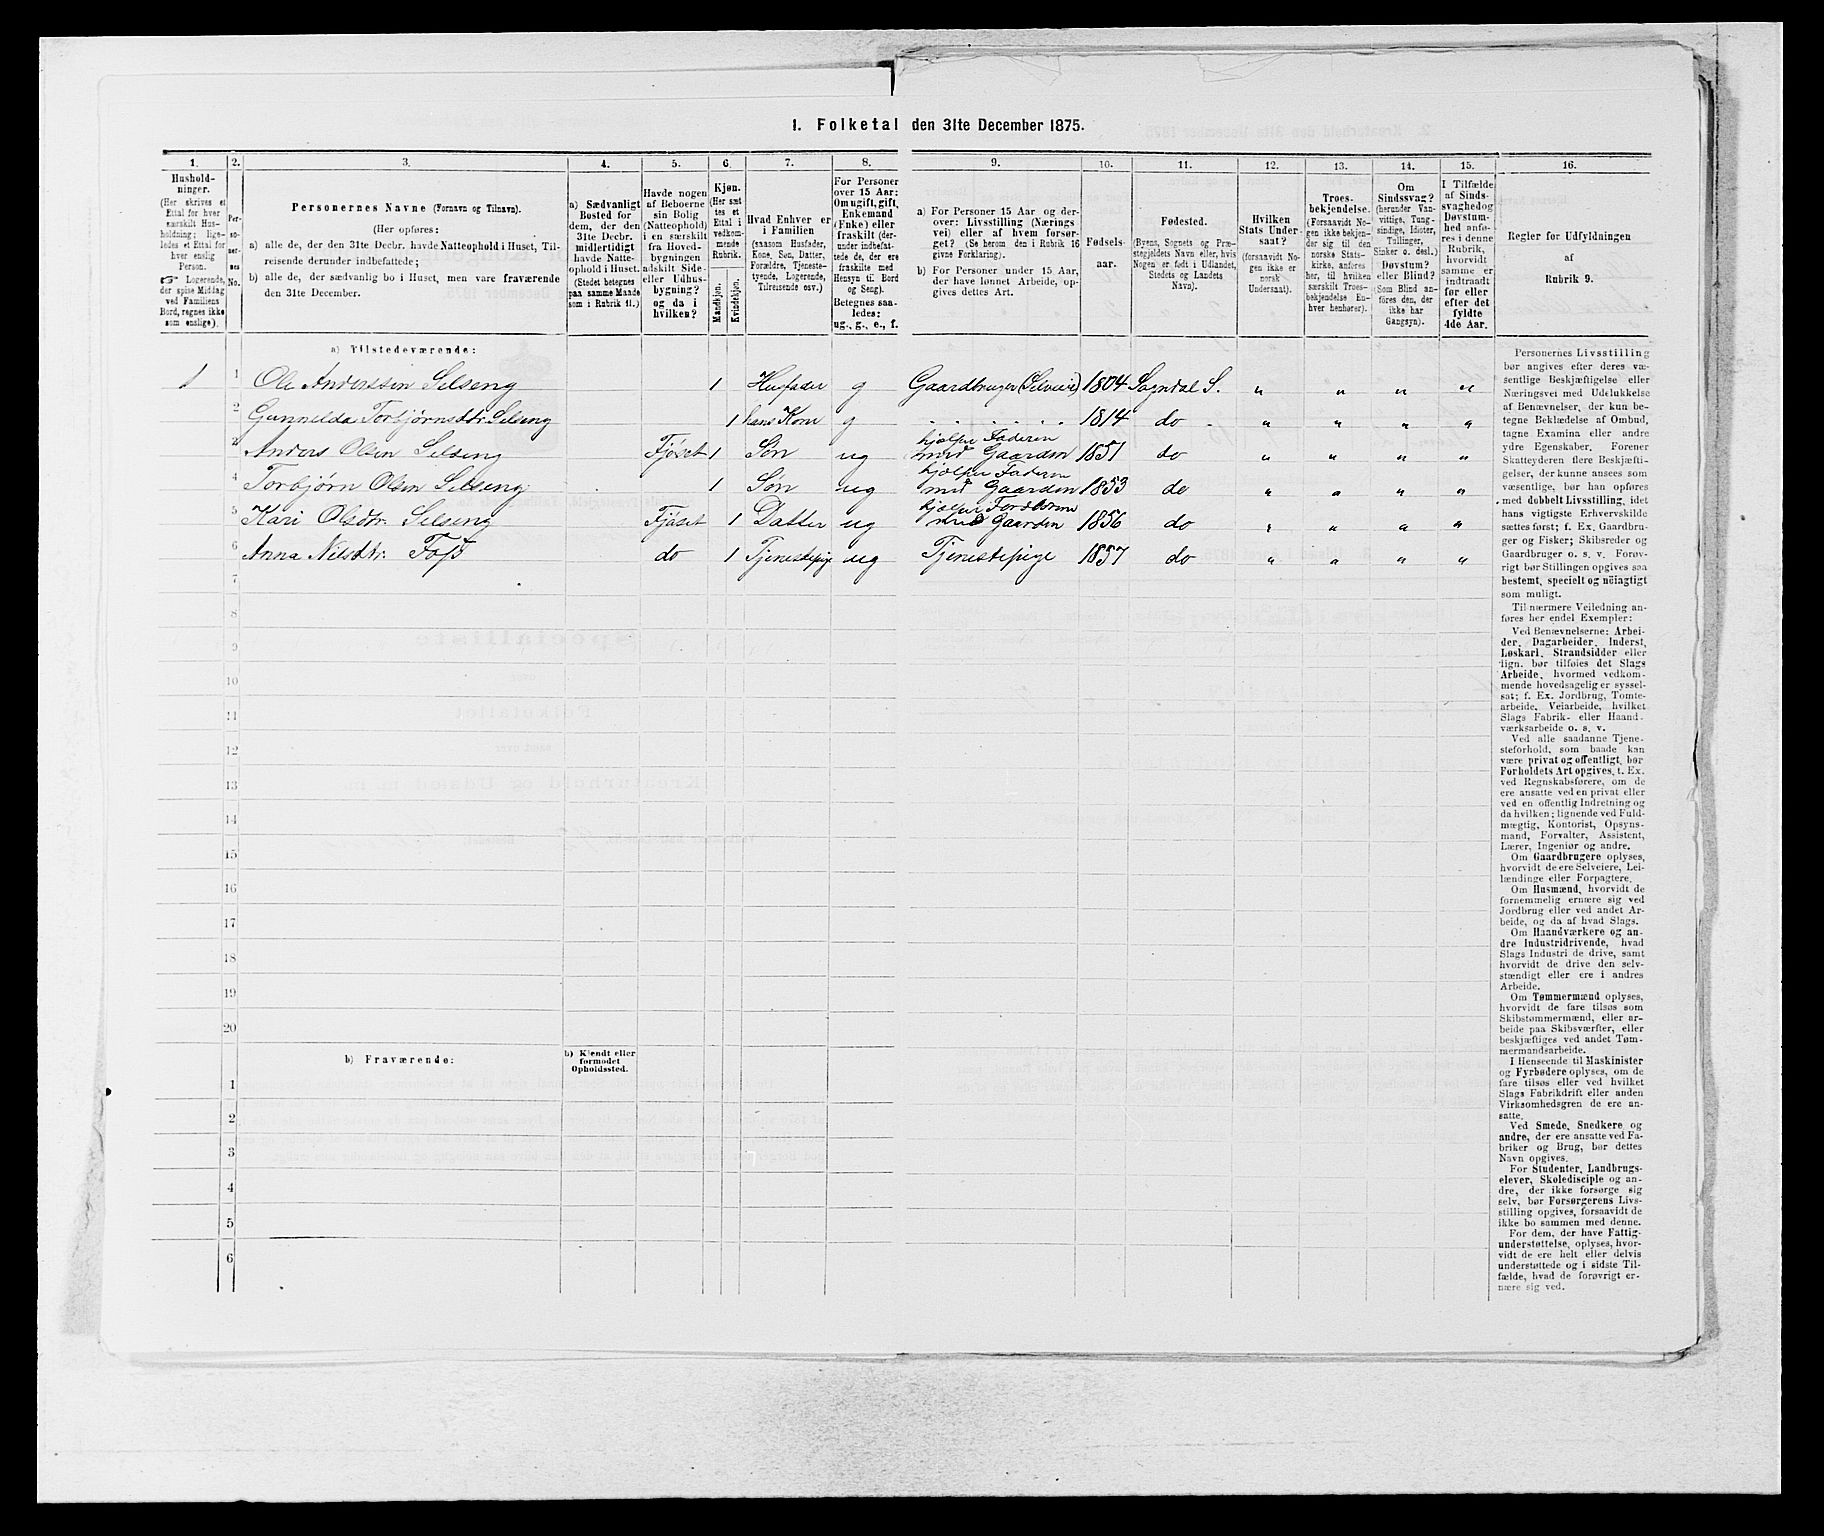 1. Folketal den 31te December 1875.
1. 2. 3. 4. 5. 6. 7. 8. 9. 10. 11. 12. 13. 14. 15. 16.
Hushold-
ninger.
(Her skrives et
Ettal for hver
særskilt Hus-
holdning; lige-
ledes et Ettal for
hver enslig
Person.
☞ Logerende,
der spise Middag
ved Familiens
Bord, regnes ikke
som enslige).
Per-
so-
ner-
nes
No.
Personernes Navne (Fornavn og Tilnavn).
(Her opføres:
a) alle de, der den 31te Decbr. havde Natteophold i Huset, Til-
reisende derunder indbefattede;
b) alle de, der sædvanlig bo i Huset, men vare fraværende
den 31te December.
a) Sædvanligt
Bosted for
dem, der den
31te Decbr.
midlertidigt
havde Natte-
ophold i Huset.
(Stedet betegnes
paa samme Maade
som i Rubrik 11.)
Havde nogen
af Beboerne
sin Bolig
(Natteophold)
i en særskilt
fra Hoved-
bygningen
adskilt Side-
eller Udhus-
bygning?
og da i
hvilken?
Kjøn.
(Her sæt-
tes et
Ettal i
vedkom-
mende
Rubrik.
Mandkjøn.
Kvindekjøn.
Hvad Enhver er
i Familien
(saasom Husfader,
Kone, Søn, Datter,
Forældre, Tjeneste-
tyende, Logerende,
Tilreisende osv.)
For Personer
over 15 Aar:
Om ugift, gift,
Enkemand
(Enke) eller
fraskilt (der-
under indbefat-
tede de, der ere
fraskilte med
Hensyn til Bord
og Seng).
Betegnes saa-
ledes:
ug., g., e., f.
a) For Personer 15 Aar og der-
over: Livsstilling (Nærings
vei) eller af hvem forsør-
get? (Se herom den i Rubrik 16
givne Forklaring).
b) For Personer under 15 Aar,
der have lønnet Arbeide, op-
gives dettes Art.
Fødsels-
aar.
Fødested.
(Byens, Sognets og Præ-
stegjeldets Navn eller, hvis
Nogen er født i Udlandet,
Stedets og Landets
Navn).
Hvilken
Stats Under-
saat?
(forsaavidt No-
gen ikke er
norsk
Undersaat).
Troes-
bekjendelse.
(Forsaavidt No-
gen ikke bekjen-
der sig til den
norske Stats-
kirke, anføres
her, til hvilken
særskilt Troes-
bekjendelse En-
hver henhører).
Om
Sindssvag?
(herunder Van-
vittige, Tung-
sindige, Idioter,
Tullinger,
Sinker o. desl.)
Døvstum?
eller Blind?
(Som Blind an-
føres den, der
ikke har
Gangsyn).
I Tilfælde
af Sinds-
svaghed og
Døvstum-
hed anfø-
res i denne
Rubrik,
hvorvidt
samme er
indtraadt
før eller
efter det
fyldte
4de Aar.
Regler for Udfyldningen
af
Rubrik 9.
a) Tilstedeværende:
1 1 Ole Anderssen Selseng 1 Husfader g Gaardbruger (Selveier) 1804 Sogndal S. " " " "
2 Gunnelda Torbjørnsdtr Selseng 1 hans Kone g . . . . . . 1814 do " " " "
3 Anders Olsen Selseng Fjøset 1 Søn ug hjælper Faderen med Gaarden 1851 do " " " "
4 Torbjørn Olsen Selseng 1 Søn ug hjælper Faderen med Gaarden 1853 do " " " "
5 Kari Olsdtr. Selseng Fjøset 1 Datter ug hjælper med Gaarden 1856 do " " " "
6 Anna Nilsdtr. Foss do 1 Tjenestepige ug Tjenestepige 1857 do " " " "
7
8
9
10
11
12
13
14
15
16
17
18
19
20
b) Fraværende:
b) Kjendt eller
formodet
Opholdssted.
1
2
3
4
5
6
Personernes Livsstilling
bør angives efter deres væ-
sentlige Beskjæftigelse eller
Næringsvei med Udelukkelse
af Benævnelser, der kun be-
tegne Beklædelse af Ombud,
tagne Examina eller andre
ydre Egenskaber. Forener
Skatteyderen flere Beskjæfti-
gelser, der kunne ansees som
væsentlige, bør han opføres
med dobbelt Livsstilling, idet
hans vigtigste Erhvervskilde
sættes først; f. Ex. Gaardbru-
ger og Fisker; Skibsreder og
Gaardbruger o. s. v. Forøv-
rigt bør Stillingen opgives saa
bestemt, specielt og nöiagtigt
som muligt.
Til nærmere Veiledning an-
føres her endel Exempler:
Ved Benævnelserne: Arbei-
der, Dagarbeider, Inderst,
Løskarl, Strandsidder eller
lign. bør tilføies det Slags
Arbeide, hvormed vedkom-
mende hovedsagelig er syssel-
sat; f. Ex. Jordbrug, Tomte-
arbeide, Veiarbeide, hvilket
Slags Fabrik- eller Haand-
værksarbeide o. s. v.
Ved alle saadanne Tjene-
steforhold, som baade kan
være privat og offentligt, bør
Forholdets Art opgives, t. Ex.
ved Regnskabsførere, om de
ere ansatte ved en privat eller
ved en offentlig Indretning og
da hvilken; lignende ved Fuld-
mægtig, Kontorist, Opsyns-
mand, Forvalter, Assistent,
Lærer, Ingeniør og andre.
Om Gaardbrugere oplyses,
hvorvidt de ere Selveiere, Lei-
lændinge eller Forpagtere.
Om Husmænd, hvorvidt de
fornemmelig ernære sig ved
Jordbrug eller ved andet Ar-
beide, og da af hvad Slags.
Om Haandværkere og an-
dre Industridrivende, hvad
Slags Industri de drive, samt
hvorvidt de drive den selv-
stændigt eller ere i andres
Arbeide.
Om Tømmermænd oplyses,
hvorvidt de fare tilsøs som
Skibstømmermænd, eller ar-
beide paa Skibsværfter, eller
beskjæftiges ved andet Tøm-
mermandsarbeide.
I Henseende til Maskinister
og Fyrbødere oplyses, om de
fare tilsøs eller ved hvilket
Slags Fabrikdrift eller anden
Virksomhedsgren de ere an-
satte.
Ved Smede, Snedkere og
andre, der ere ansatte ved Fa-
briker og Brug, bør dettes
Navn opgives.
For Studenter, Landbrugs-
elever, Skoledisciple og an-
dre, der ikke forsørge sig
selv, bør Forsørgerens Livs-
stilling opgives, forsaavidt de
ikke bo sammen med denne.
For dem, der have Fattig-
understøttelse, oplyses, hvor-
vidt de ere helt eller delvis
understøttede og i sidste Til-
fælde, hvad de forøvrigt er-
nære sig ved.